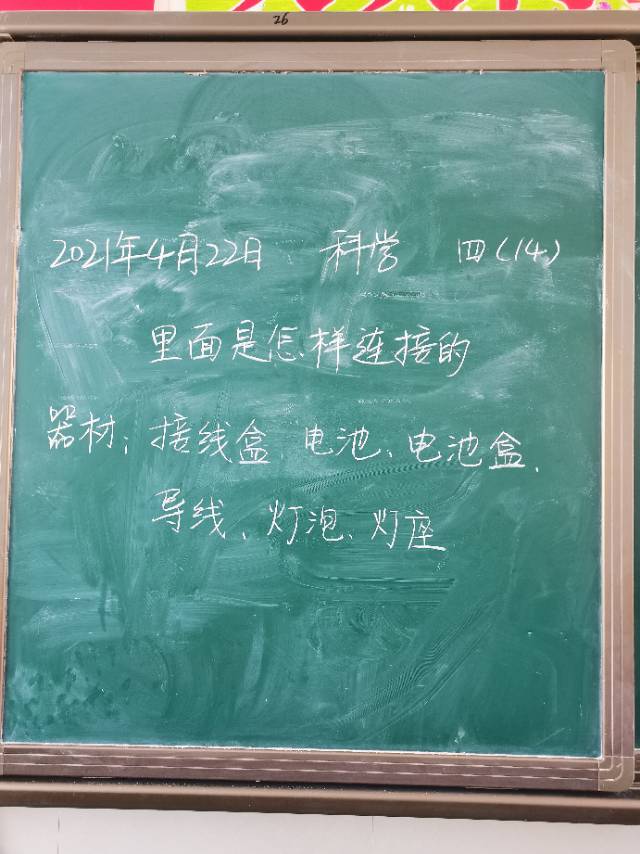 26
2021年4月22日 科学 四(14)
里面是怎样连接的
器材:接线盒 电池、电池盒、
导线、灯泡、灯座